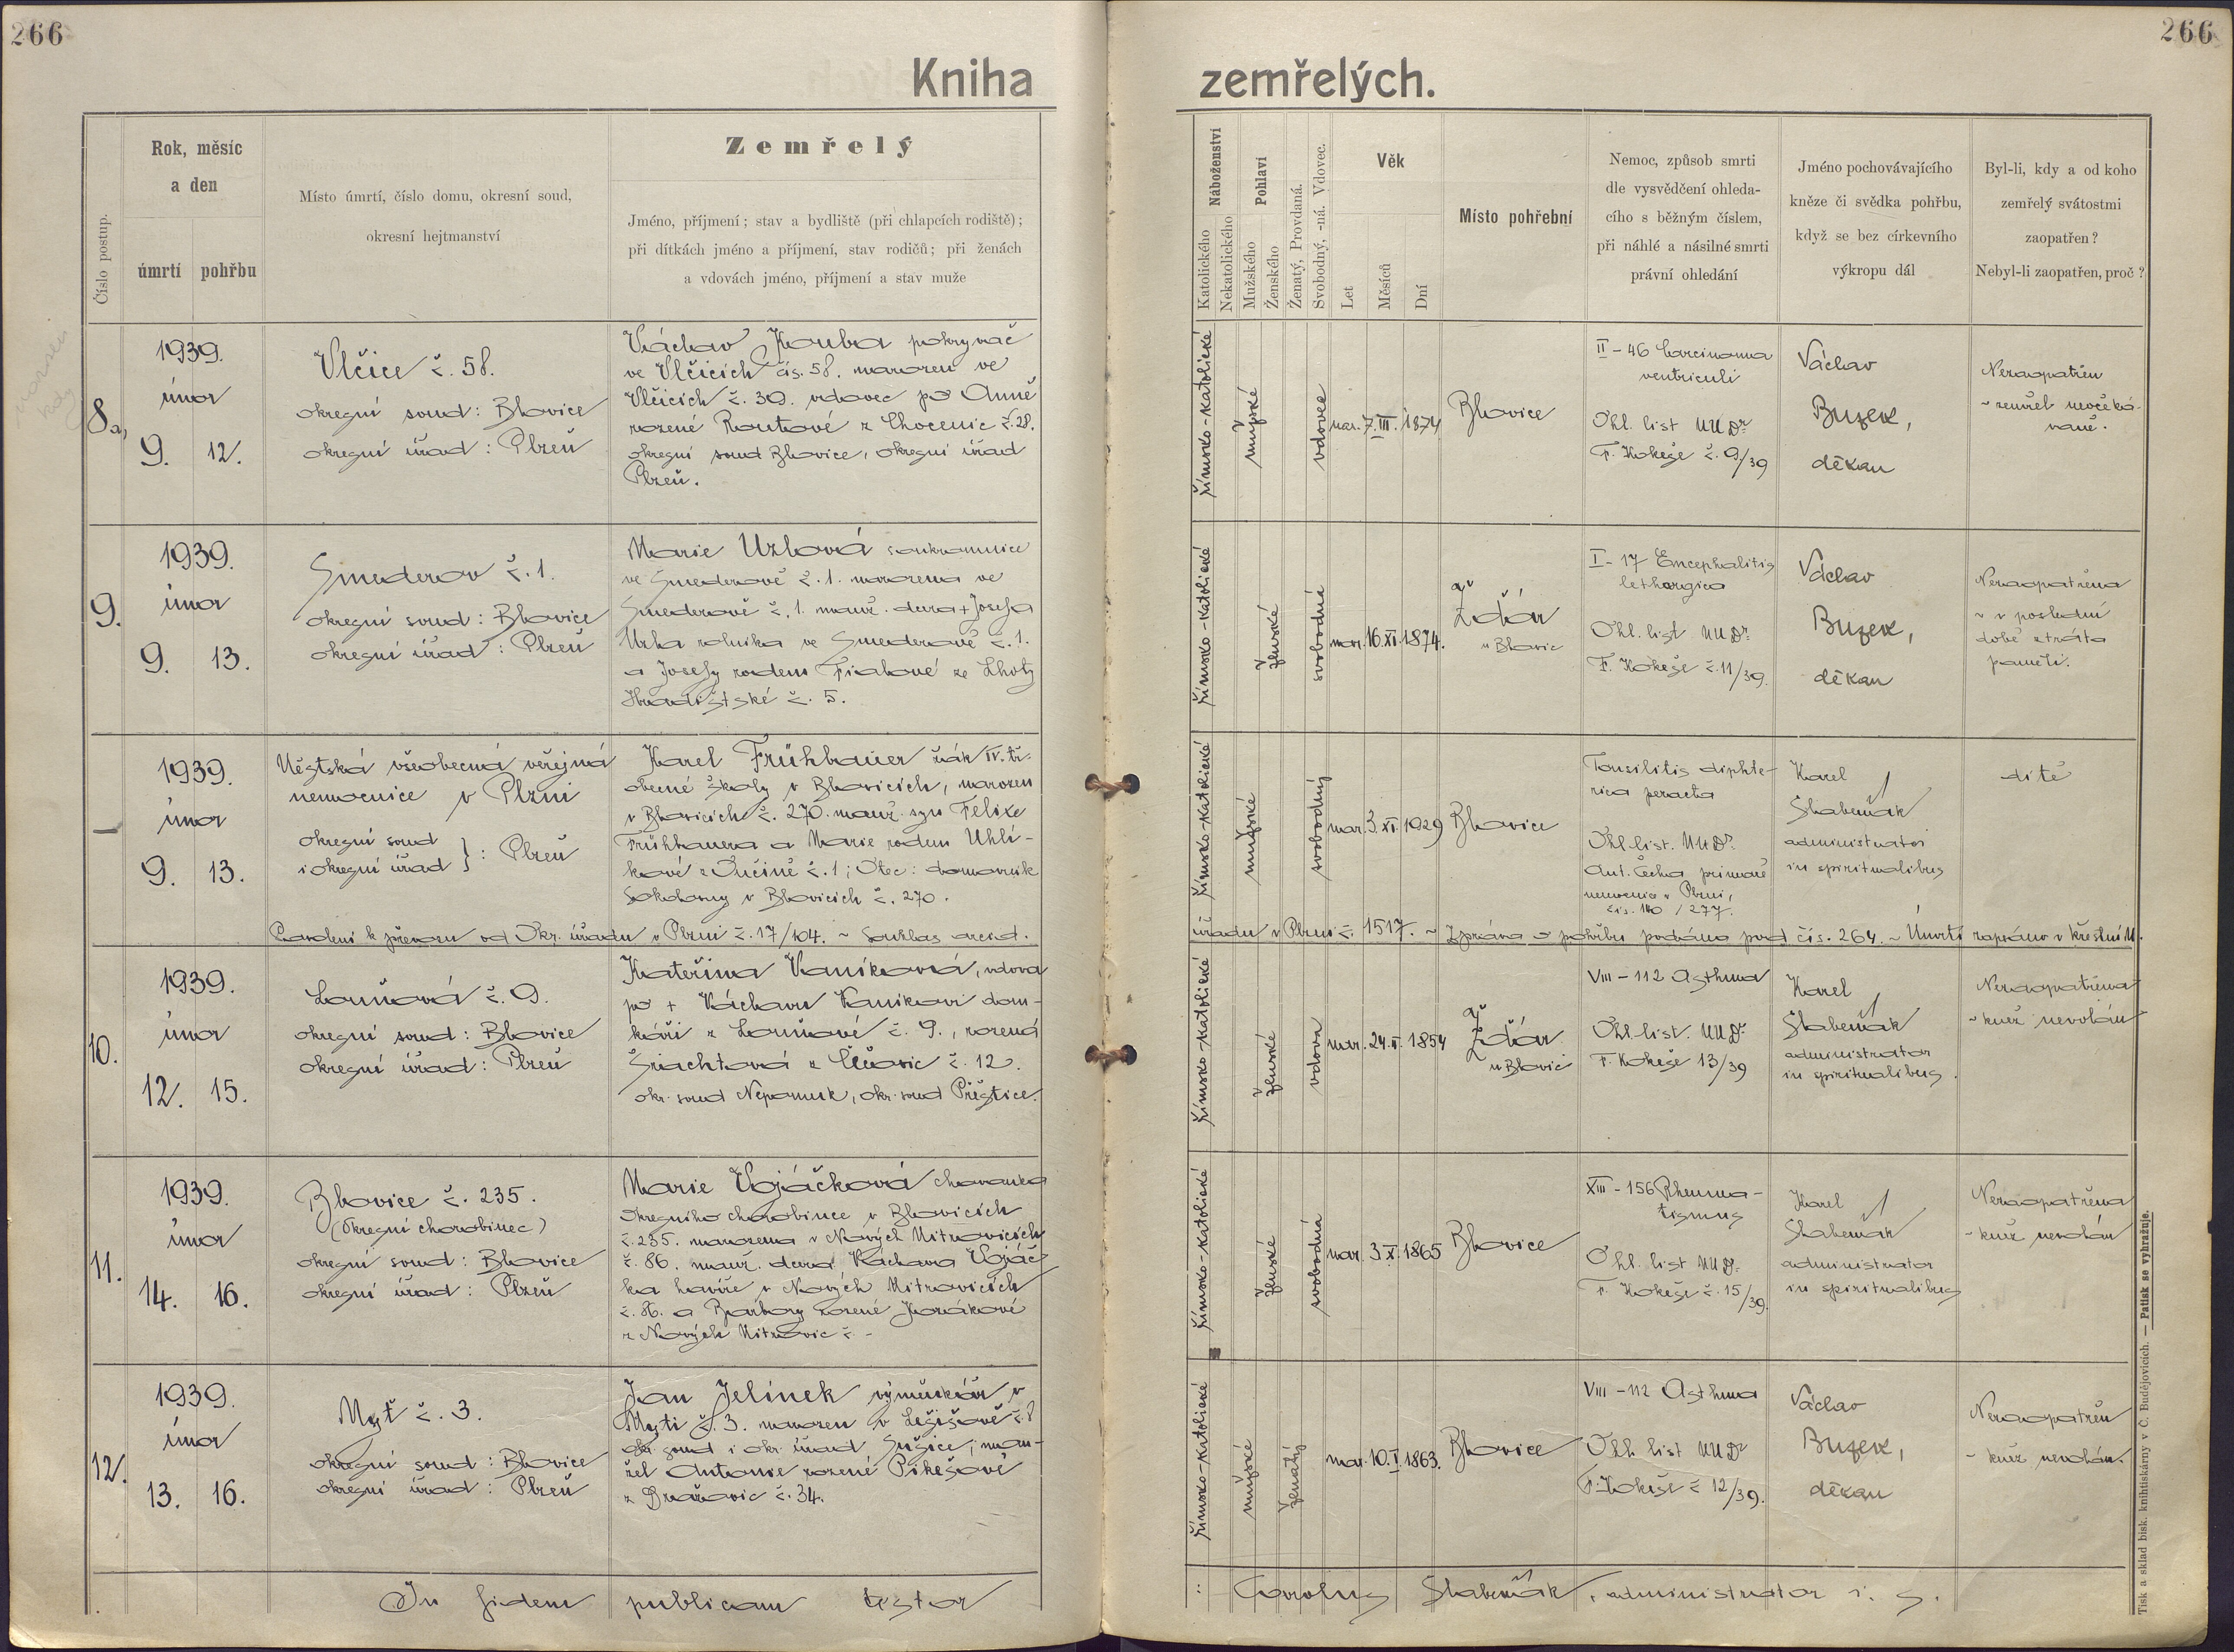 266
266
Kniha
zemřelých.
Číslo postup.
Rok, měsíc
a den
úmrtí
pohřbu
Místo úmrtí, číslo domu, okresní soud,
okresní hejtmanství
Zemřelý
Jméno, příjmení; stav a bydliště (při chlapcích rodiště);
při dítkách jméno a příjmení, stav rodičů; při ženách
a vdovách jméno, příjmení a stav muže
Náboženství
Katolického
Nekatolického
Pohlaví
Mužského
Ženského
Ženatý, Provdaná.
Svobodný, -ná. Vdovec.
Věk
Let
Měsíců
Dní
Místo pohřební
Nemoc, způsob smrti
dle vysvědčení ohleda-
cího s běžným číslem,
při náhlé a násilné smrti
právní ohledání
Jméno pochovávajícího
kněze či svědka pohřbu,
když se bez církevního
výkropu dál
Byl-li, kdy a od koho
zemřelý svátostmi
zaopatřen?
Nebyl-li zaopatřen, proč?
8a,
1939.
únor
9. 12.
Vlčice č. 58.
okresní soud: Blovice
okresní úřad: Plzeň
Václav Kouba pokryvač
ve Vlčicích čís. 58. narozen ve
Vlčicích č. 30. vdovec po Anně
rozené Routové z Chocenic č. 28.
okresní soud Blovice, okresní úřad
Plzeň.
římsko-katolické
mužské
vdovec
nar. 7. III. 1874
Blovice
II - 46 Carcinoma
ventriculi
Ohl. list MUDr
F. Kokeše č. 9/39
Václav
Buzek,
děkan
Nezaopatřen
~ zemřel neočeká-
vaně.
9.
1939.
únor
9. 13.
Smederov č. 1.
okresní soud: Blovice
okresní úřad: Plzeň
Marie Uzlová soukromnice
ve Smederově č. 1. narozena ve
Smederově č. 1. manž. dcera + Josefa
Uzla rolníka ve Smederově č. 1.
a Josefy rodem Fialové ze Lhoty
Hradišťské č. 5.
římsko-katolické
ženské
svobodná
nar. 16. XI. 1874.
Žďár
u Blovic
I - 17 Encephalitis
lethargica
Ohl. list MUDr
F. Kokeše č. 11/39.
Václav
Buzek,
děkan
Nezaopatřena
~ v poslední
době ztráta
paměti.
—
1939.
únor
9. 13.
Městská všeobecná veřejná
nemocnice v Plzni
okresní soud
i okresní úřad } : Plzeň
Karel Frühbauer žák IV. tř.
obecné školy v Blovicích, narozen
v Blovicích č. 270. manž. syn Felixe
Frühbauera a Marie rodem Uhlí-
kové z č. 1; Otec: domovník
Sokolovny v Blovicích č. 270.
římsko-katolické
mužské
svobodný
nar. 3. XI. 1929
Blovice
Tonsilitis diphte-
rica peracta
Ohl. list. MUDr.
Ant. Čecha primáře
nemocnice v Plzni,
čís. 140 / 277.
Karel
Slabeňák
administrator
in spiritualibus
dítě
Povolení k převozu od Okr. úřadu v Plzni č. 17/104. ~ Souhlas
úřadu v Plzni č. 1517. ~ Zpráva o pohřbu podána pod čís. 264. ~ Úmrtí zapsáno v křestní M.
10.
1939.
únor
12. 15.
Louňová č. 9.
okresní soud: Blovice
okresní úřad: Plzeň
Kateřina Kaníková, vdova
po + Václavu Kaníkovi dom-
káři z Louňové č. 9., rozená
Šlachtová z č. 12.
okr. soud Nepomuk, okr. soud Přeštice.
římsko-katolické
ženské
vdova
nar. 24. 1854
Žďár
u Blovic
VIII - 112 Asthma
Ohl. list. MUDr
F. Kokeše 13/39
Karel
Slabeňák
administrator
in spiritualibus.
Nezaopatřena
~ kněz nevolán
11.
1939.
únor
14. 16.
Blovice č. 235.
(Okresní chorobinec)
okresní soud: Blovice
okresní úřad: Plzeň
Marie Vojáčková chovanka
okresního chorobince v Blovicích
č. 235. narozena v Nových Mitrovicích
č. 86. manž. dcera Václava Vojáč-
ka havíře v Nových Mitrovicích
č. 86. a Barbory rozené Horákové
z Nových Mitrovic č. -
římsko-katolické
ženské
svobodná
nar. 3. X. 1865
Blovice
XIII - 156 Rheuma-
tismus
Ohl. list MUDr.
F. Kokeše č. 15/39.
Karel
Slabeňák
administrator
in spiritualibus
Nezaopatřena
- kněz nevolán
12.
1939.
únor
13. 16.
Mysť č. 3.
okresní soud: Blovice
okresní úřad: Plzeň
Jan Jelínek výměnkář v
Mysti č. 3. narozen v Lešišově č. 8
okr. soud i okr. úřad Sušice; man-
žel Antonie rozené Pikešové
z Dražovic č. 34.
římsko-katolické
mužské
ženatý
nar. 10. I. 1863.
Blovice
VIII - 112 Asthma
Ohl. list MUDr
F. Kokeše č 12/39.
Václav
Buzek,
děkan
Nezaopatřen
- kněz nevolán.
In fidem publicam testor
:: Carolus Slabeňák, administrator i. s.
Tisk a sklad bisk. knihtiskárny v Č. Budějovicích. — Patisk se vyhražuje.